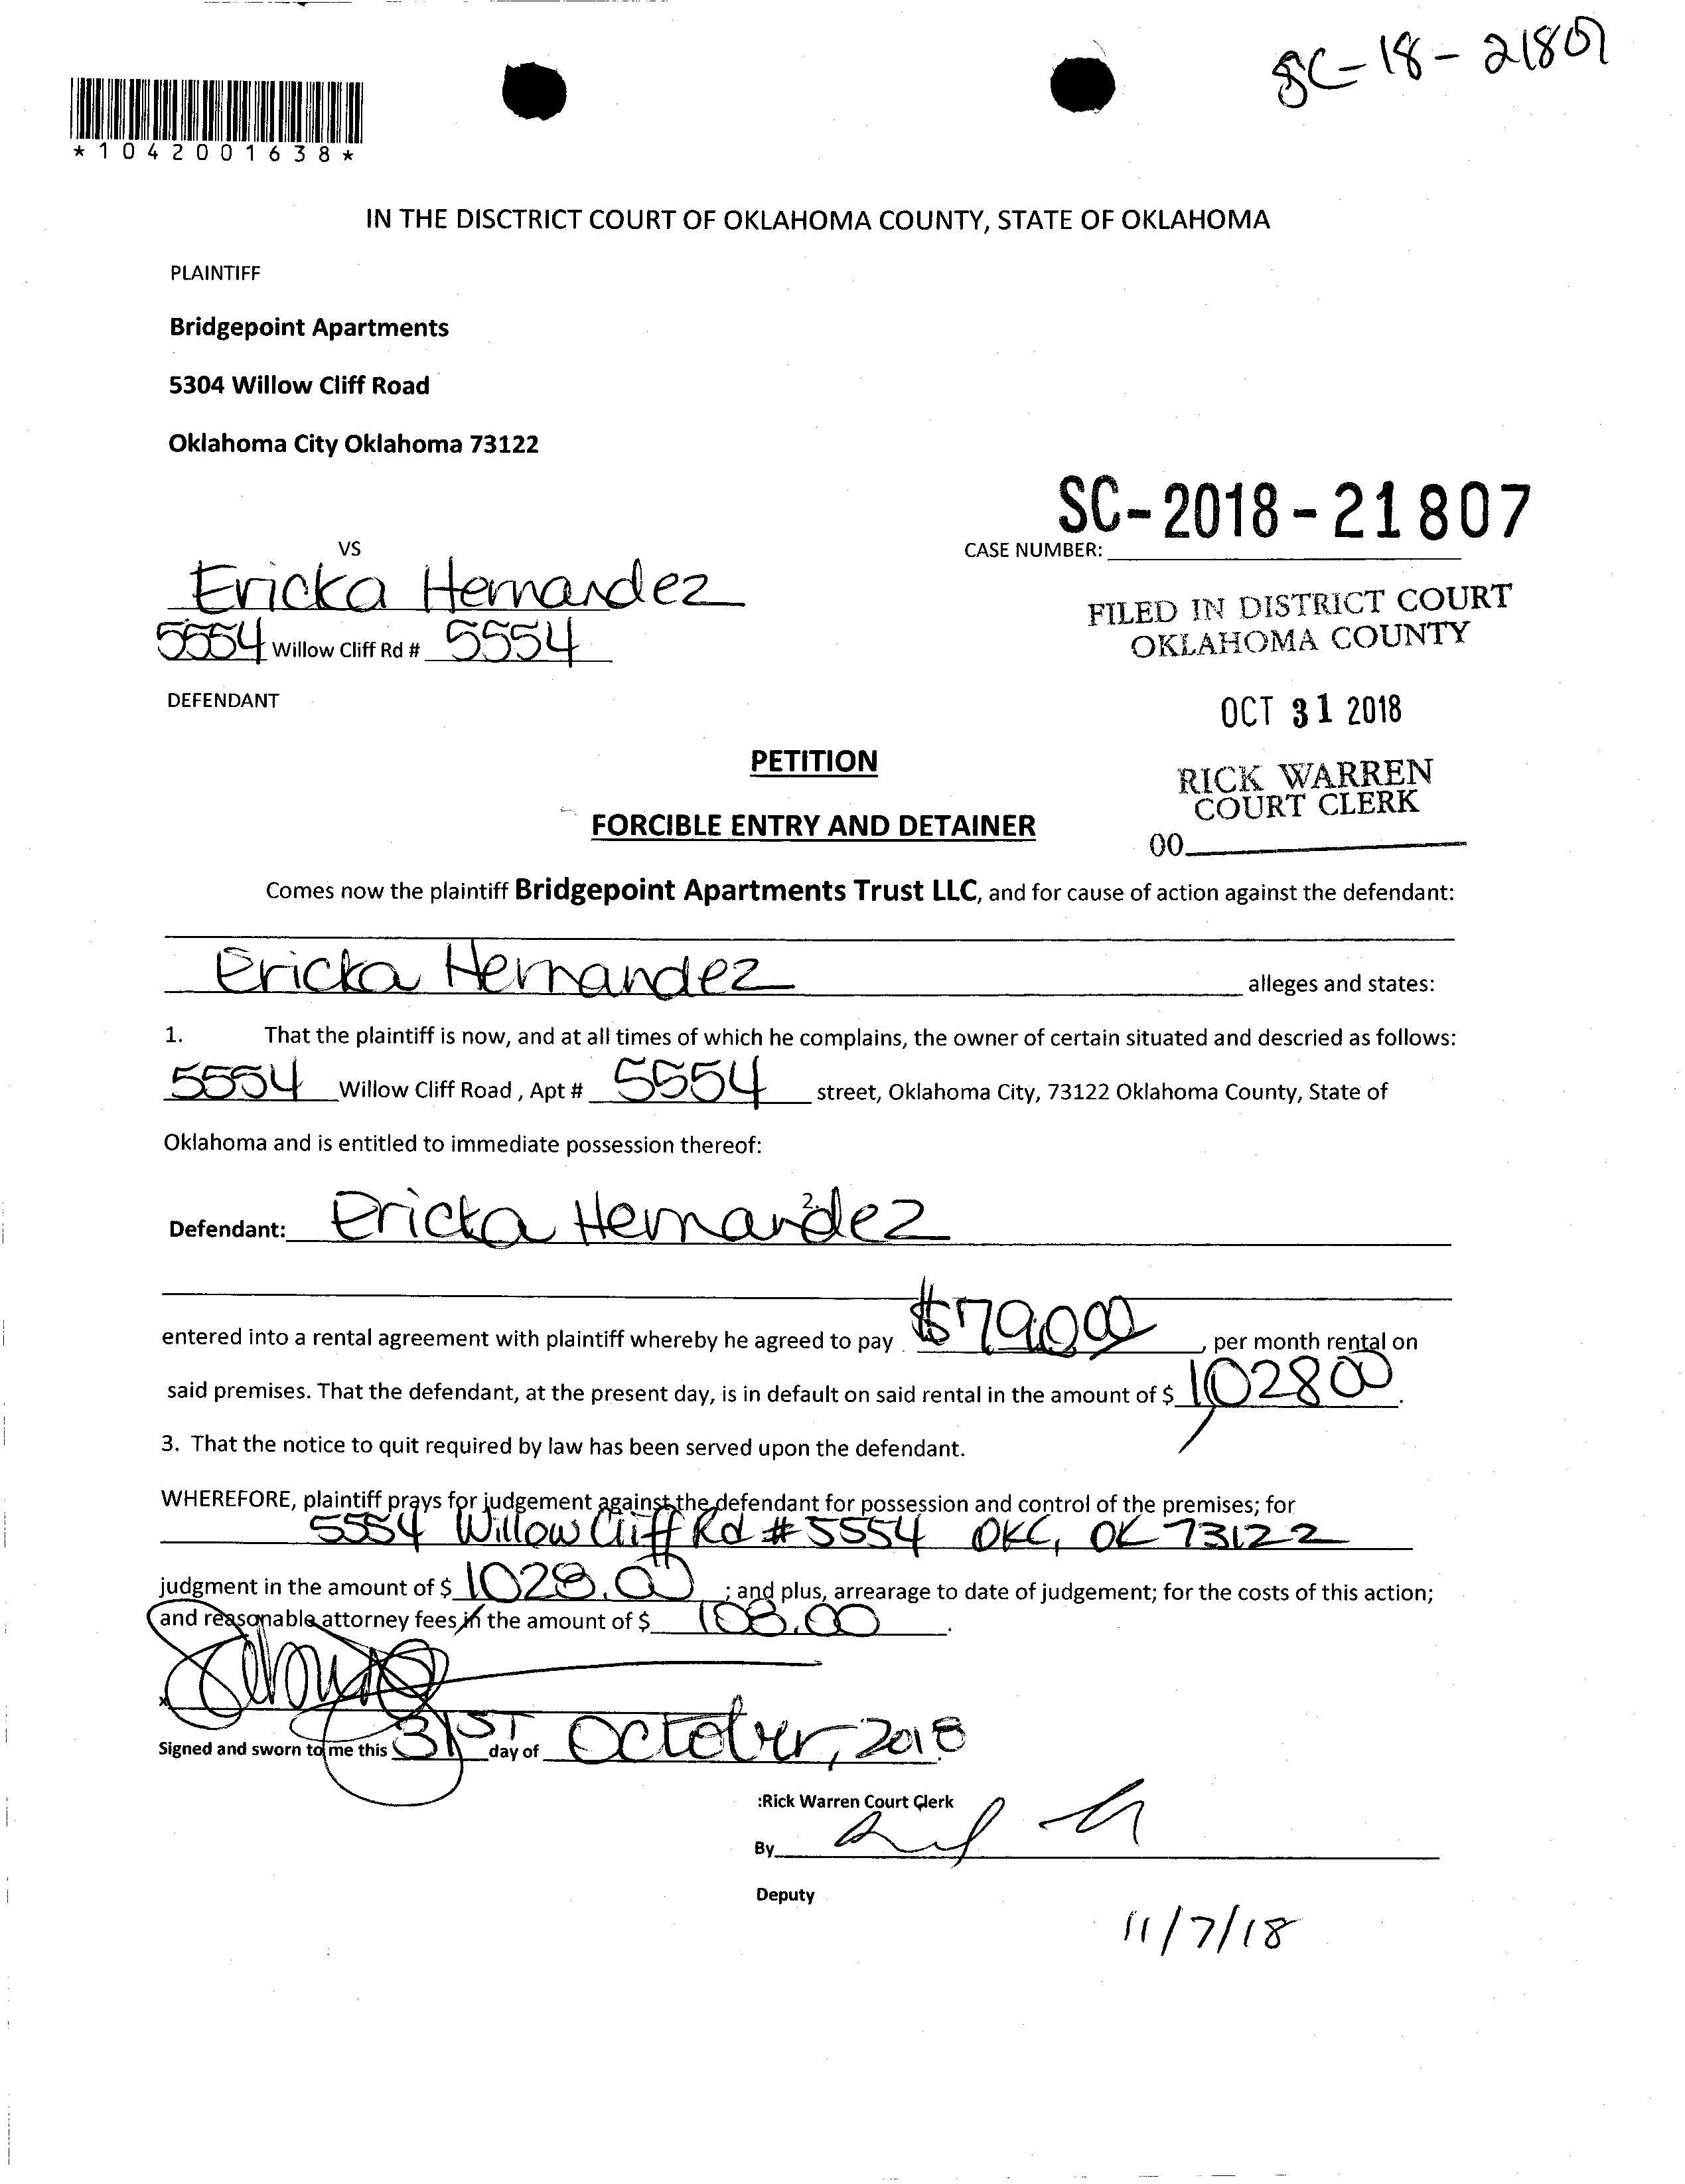 SC-18-21807
*1042001638*
IN THE DISCTRICT COURT OF OKLAHOMA COUNTY, STATE OF OKLAHOMA
PLAINTIFF
Bridgepoint Apartments
5304 Willow Cliff Road
Oklahoma City Oklahoma 73122
SC-2018-21807
VS
CASE NUMBER:
Ericka Hernandez
5554 Willow Cliff Rd # 5554
FILED IN DISTRICT COURT
OKLAHOMA COUNTY
DEFENDANT
OCT 31 2018
PETITION
RICK WARREN
COURT CLERK
FORCIBLE ENTRY AND DETAINER
00
Comes now the plaintiff Bridgepoint Apartments Trust LLC, and for cause of action against the defendant:
Ericka Hernandez alleges and states:
1. That the plaintiff is now, and at all times of which he complains, the owner of certain situated and descried as follows:
5554 Willow Cliff Road , Apt # 5554 street, Oklahoma City, 73122 Oklahoma County, State of
Oklahoma and is entitled to immediate possession thereof:
2.
Defendant: Ericka Hernandez
entered into a rental agreement with plaintiff whereby he agreed to pay $790.00, per month rental on
said premises. That the defendant, at the present day, is in default on said rental in the amount of $ 1,028 00.
3. That the notice to quit required by law has been served upon the defendant.
WHEREFORE, plaintiff prays for judgement against the defendant for possession and control of the premises; for
5554 Willow Cliff Rd # 5554 OKC, OK 73122
judgment in the amount of $ 1028.00 ; and plus, arrearage to date of judgement; for the costs of this action;
and reasonable attorney fees in the amount of $ 108.00.
x
Signed and sworn to me this 31ST day of October, 2018
:Rick Warren Court Clerk
By
Deputy
11/7/18